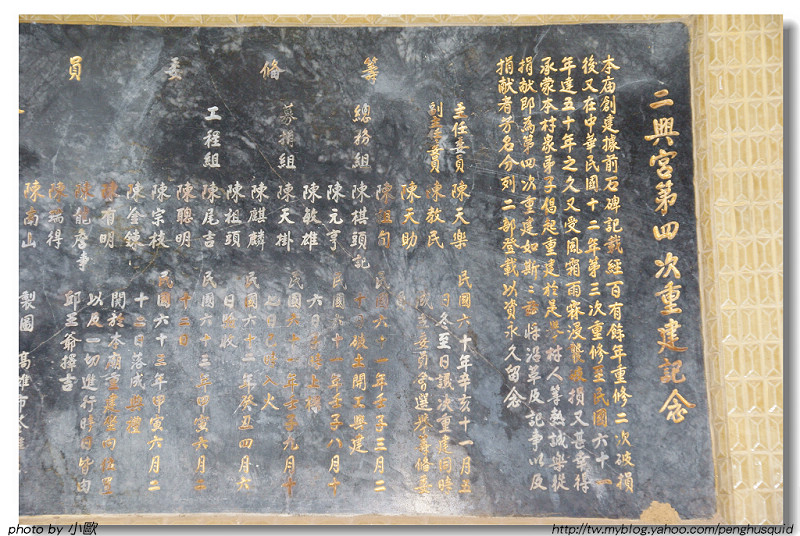 二興宮第四次重建記念
本庙創建據前石碑記載經百有餘年重修二次破損
後又在中華民國十二年第三次重修至民國六十一
年達五十年之久又受風霜雨霖浸破損又甚幸得
承蒙本村眾弟子倡起重建於是學村人等熱誠樂從
捐献即為第四次重建如斯二將沿革及記事以及
捐献者芳名分列二部登載以資永久留念
籌修委員
主任委員 陳天樂
副主任委員 陳教民
陳天助
總務組
陳棋頭記
陳元亨
陳敏雄
募捐組 陳天掛
陳麒麟
陳祖頭
工程組 陳尾吉
陳聰明
陳宗棱
陳金鍊
陳有明
陳龍彥事
陳瑞得
陳高山
民國六十年辛亥十一月五
日冬至日議次重建同時
成立委員會選舉籌修委
民國六十一年壬子三月二
開工興建
民國六十一年壬子八月十
六日
民國六十一年壬子九月十
七日入火
民國六十二年癸丑四月六
日驗收
民國六十三年甲寅六月二
十二日
民國六十三年甲寅六月二
十二日落成典禮
關於本廟
以及一切進行時日皆由
邱王爺擇吉
製圖 高雄市
photo by 小歐
http://tw.myblog.yahoo.com/penghusquid